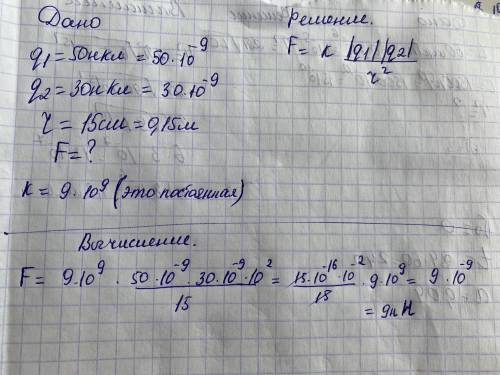 Дано
q1 = 50нкл = 50·10⁻⁹
q2 = 30нкл = 30·10⁻⁹
r = 15см = 0,15м
F = ?
k = 9·10⁹ (это постоянная)
Решение.
F = k |q1| |q2| / r²
Вычисление.
F = 9·10⁹ · 50·10⁻⁹ · 30·10⁻⁹·10² / 15 = 15·10⁻¹⁶·10⁻² / 15 · 9·10⁹ = 9·10⁻⁹
= 9нН